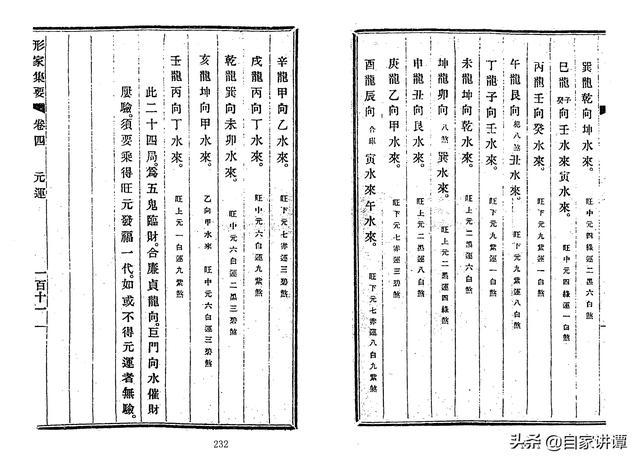 巽龍乾向坤水來。 旺中元六白運二黑六白煞
巳龍癸子向壬水寅水來。 旺中元四綠運一白煞
丙龍壬向癸水來。 旺下元九紫運一白煞
午龍艮向 八煞 丑水來。 旺下元九紫運八白煞
丁龍子向壬水來。 旺下元九紫運一白煞
未龍坤向乾水來。 旺上元二黑運六白煞
坤龍卯向 八煞 巽水來。 旺上元二黑運四綠煞
申龍丑向艮水來。 旺上元二黑運八白煞
庚龍乙向甲水來。 旺下元七赤運三碧煞
酉龍辰向 寅水來午水來。 旺下元七赤運八白九紫煞
辛龍甲向乙水來。 旺下元七赤運三碧煞
戌龍丙向丁水來。 旺中元六白運九紫煞
乾龍巽向未卯水來。 旺中元六白運二黑三碧煞
亥龍坤向甲水來。 乙向甲水來 旺中元六白運三碧煞
壬龍丙向丁水來。 旺上元一白運九紫煞
此二十四局。為五鬼臨財。合廉貞龍向。巨門向水催財
屢驗。須要乘得旺元發福一代。如或不得元運者無驗。
形家集要 卷四 元運 一百十一
232
头条 @自家讲谭